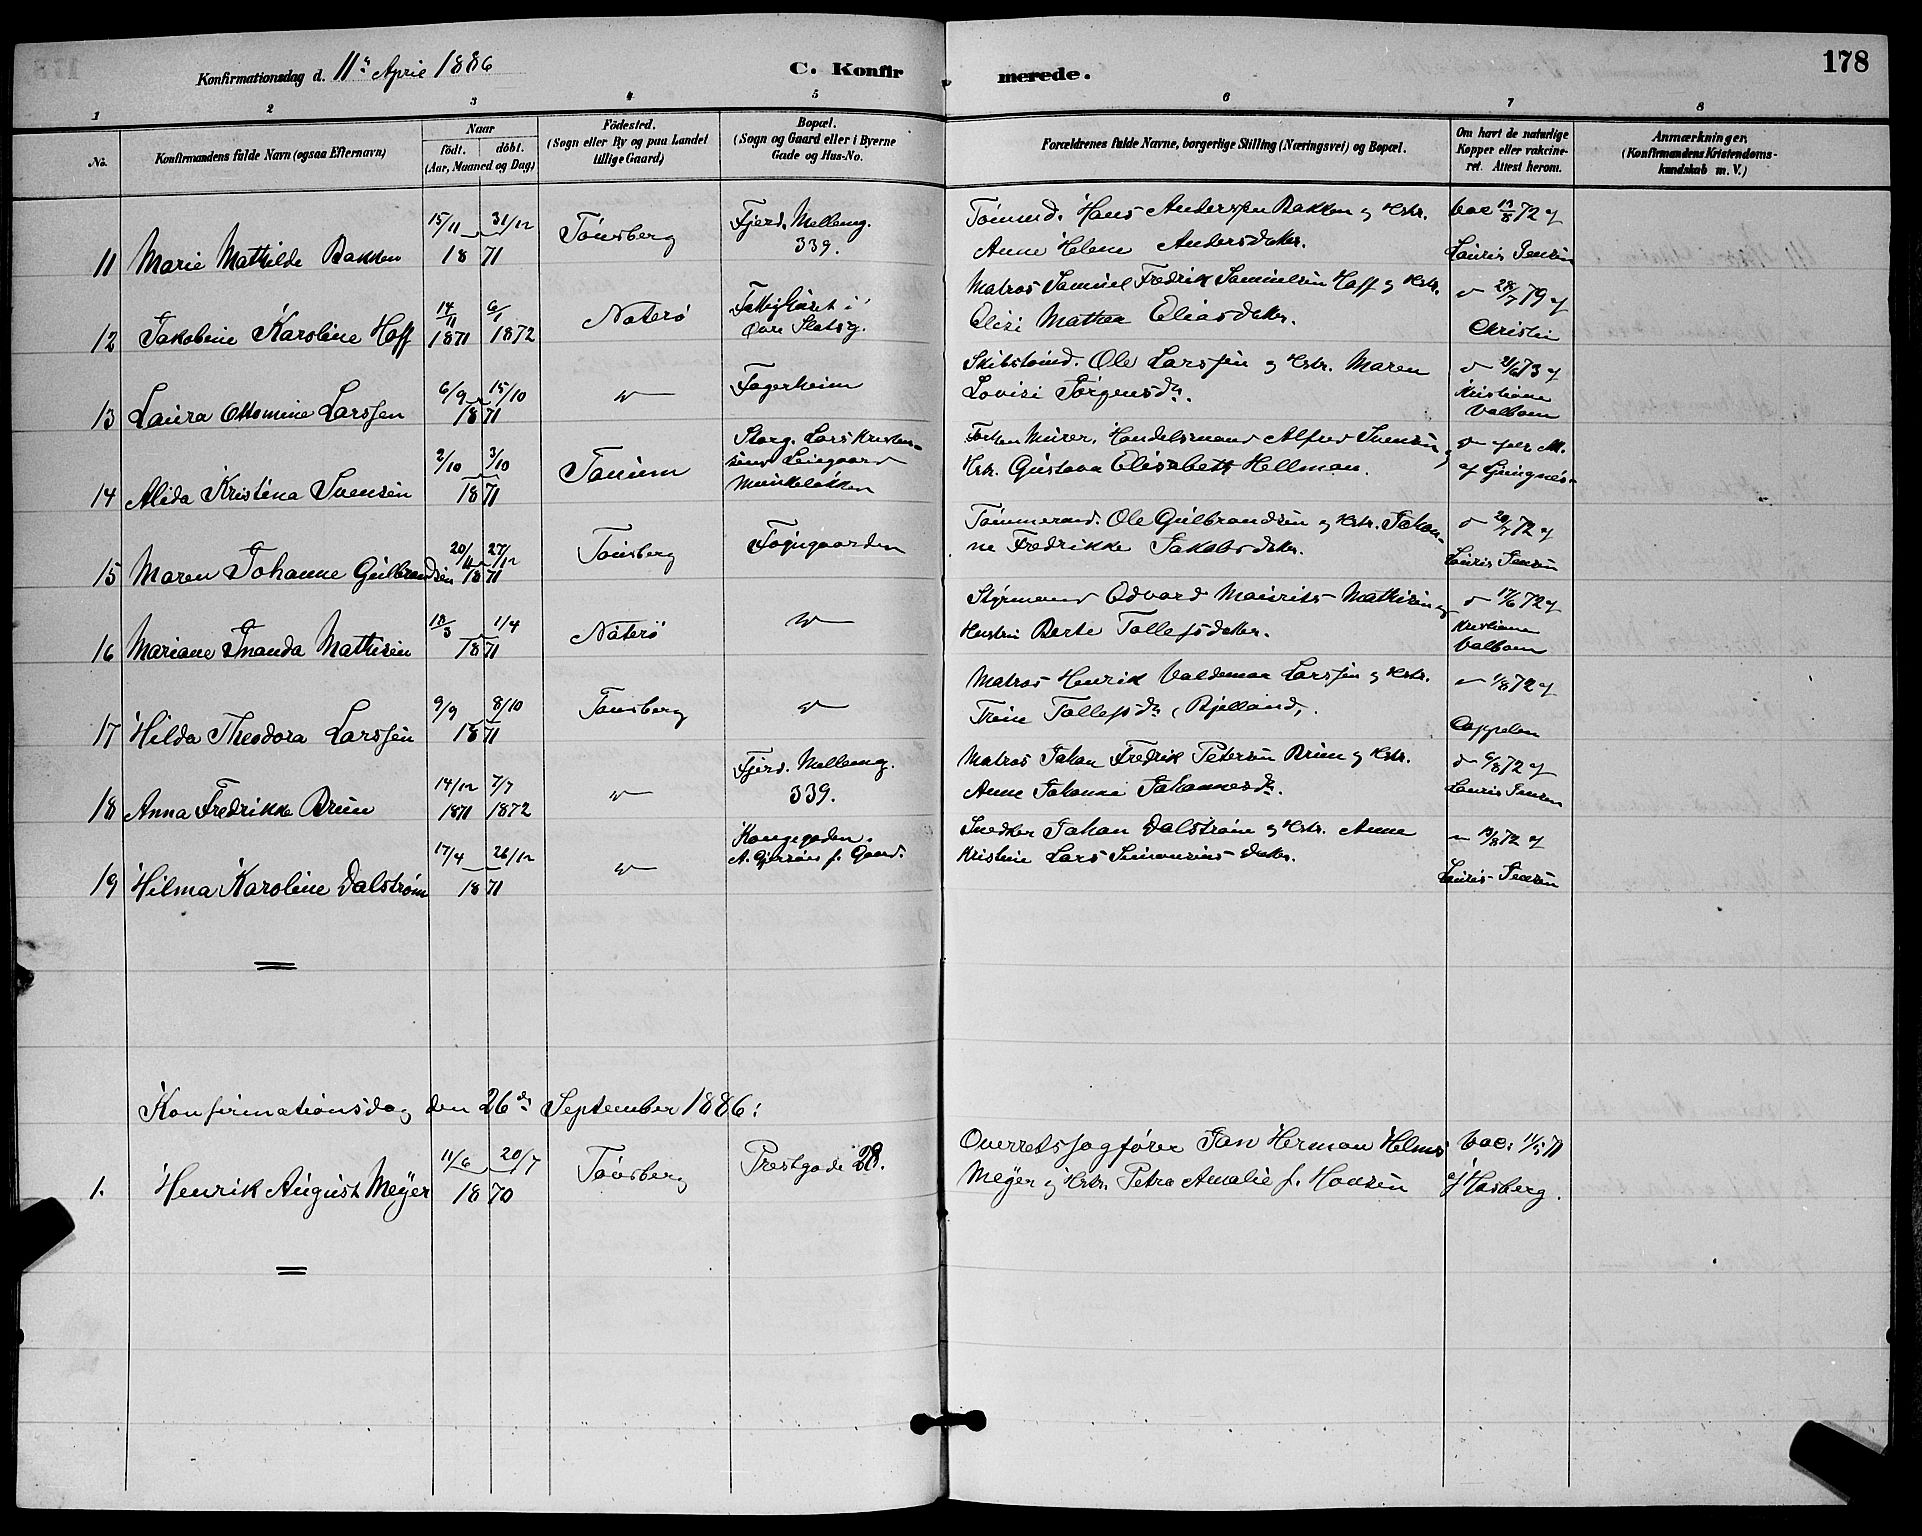 178
Konfirmationsdag d. 11te April 1886
C. Konfirmerede.
1 2 3 4 5 6 7 8
No.
Konfirmandens fulde Navn (ogsaa Efternavn)
Naar
födt. döbt.
(Aar, Maaned og Dag)
Födested.
(Sogn eller By og paa Landet
tillige Gaard)
Bopæl.
(Sogn og Gaard eller i Byerne
Gade og Hus-No.
Forældrenes fulde Navne, borgerlige Stilling (Næringsvei) og Bopæl.
Om havt de naturlige
Kopper eller vakcine-
ret. Attest herom.
Anmærkninger.
(Konfirmandens Kristendoms-
kundskab m. V.)
11 Marie Mathilde Bakken 15/11 31/12 1871 Tönsberg
Fjerd. Mellemg.
339.
Tömmd. Hans Anderssen Bakken og Hstr.
Anne Helene Andersdater.
vac 13/8 72 af
Lauris Jensen
12 Jakobine Karoline Hoff 14/11 1871 6/1 1872 Nöterö
Fattighuset i
övre Slotsg.
Matros Samuel Fredrik Samuelsen Hoff og Hstr.
Elisi Mathea Eliasdater.
" 28/7 79 af
Christie
13 Laura Ottomine Larssen 6/9 15/10 1871 "
Fagerheim
Skibstömd. Ole Larssen og Hstr. Maren
Lovisi Jörgensdr.
" 21/6 73 af
Kristiane
Valboem
14 Alida Kristina Svensen 2/10 3/10 1871 Tanum
Storg. Lars Kristen-
sens Leiegaard
Munkeløkken
Forhen Murer, Handelsmand Alfred Svensen og
Hstr. Gustava Elisabeth Hellman.
af Ljungnes
15 Maren Johanne Gulbrandsen 20/11 27/12 1871 Tönsberg
Töjegaarden
Tömmermd. Ole Gulbrandsen og Hstr. Johan-
ne Fredrikke Jakobsdater.
" 20/7 72 af
Lauris Jensen
16 Mariane Amanda Mathisen 18/3 1/4 1871 Nöterö "
Styrmand Edvard Mauritz Mathisen og
Hustru Berte Tollefsdater.
" 17/6 72 af
Kristiane
Valboem
17 Hilda Theodora Larssen 9/9 8/10 1871 Tönsberg "
Matros Henrik Valdemar Larssen og Hstr.
Trine Tollefsdr. (Bjelland).
" 1/8 72 af
Cappelen
18 Anna Fredrikke Brun 14/12 1871 7/7 1872 "
Fjerd. Mellemg.
339.
Matros Johan Fredrik Petersen Brun og Hstr.
Anne Johanne Johannesdr.
" 6/8 72 af
Lauris Jensen
19 Hilma Karoline Dalström 17/4 26/12 1871 "
Kongegaden.
Snedker Johan Dalström og Hstr. Anne
Kristine Lars Simonsens dater.
" 13/8 72 af
Lauris Jensen
Konfirmationsdag den 26de September 1886:
1. Henrik August Meyer 11/6 20/7 1870 Tönsberg Prestgade 28.
Overretssagförer Jan Herman Helms
Meyer og Hstr. Petra Amalie f. Hansen
vac: 11/5 71
af Hasberg.